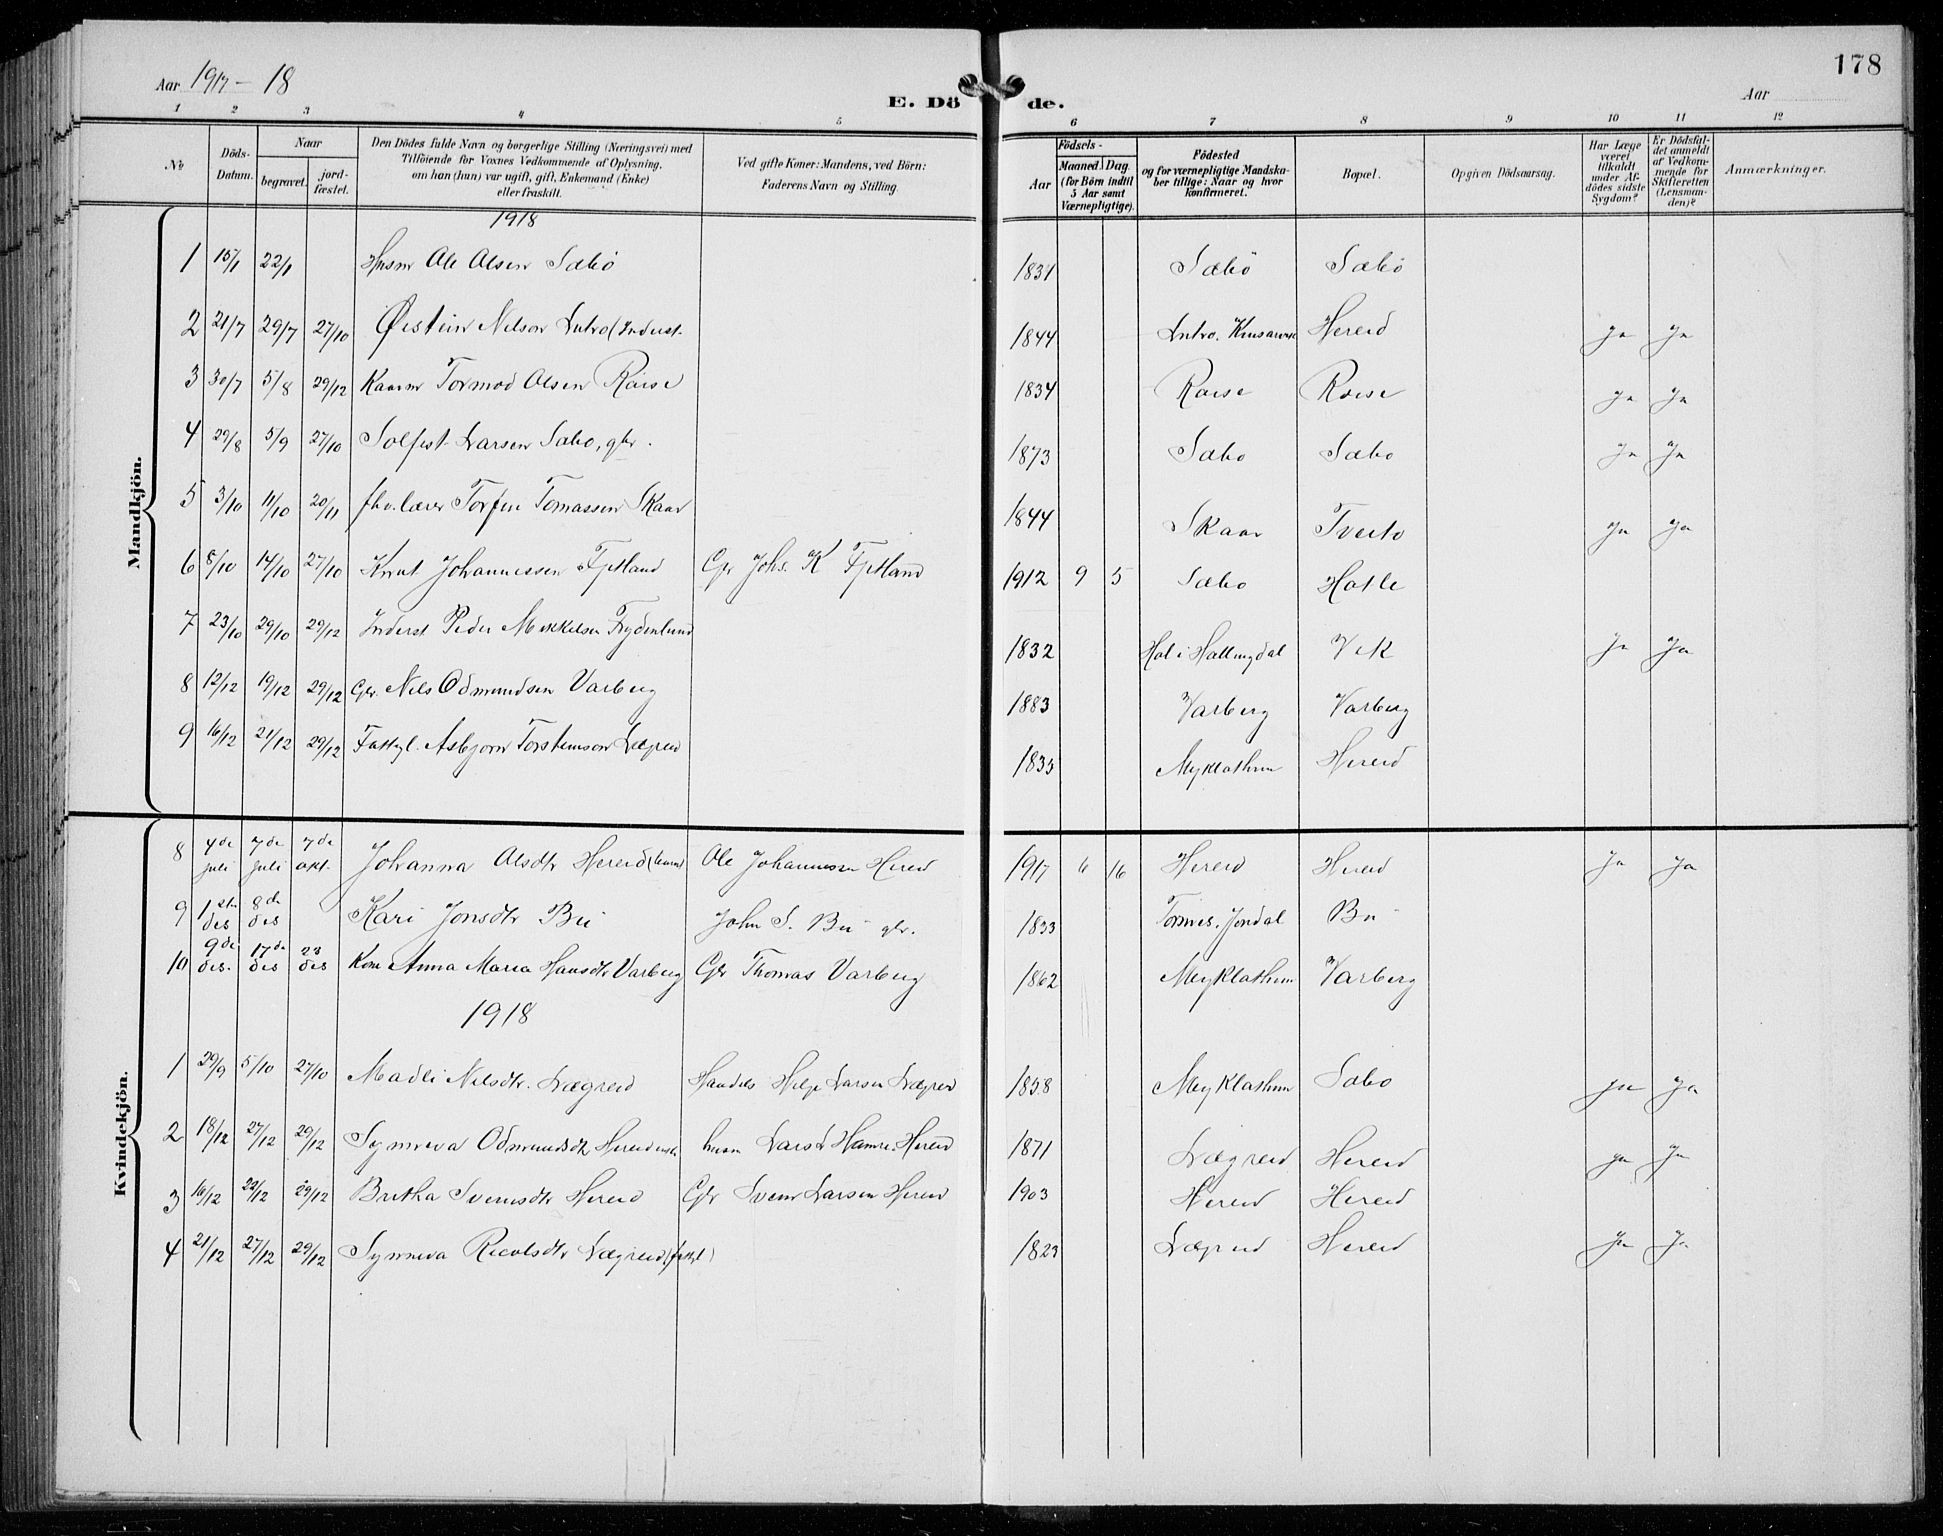 Aar 1917 - 18
178
E. Dö de.
Aar
1 2 3 4 5 6 7 8 9 10 11 12
No
Döds-Datum.
Naar
begravet.
jord-fæstet.
Den Dödes fulde Navn og borgerlige Stilling (Næringsvei) med
Tilföiende for Voxnes Vedkommende af Oplysning,
om han (hun) var ugift, gift, Enkemand (Enke)
eller fraskilt.
Ved gifte Koner: Mandens, ved Börn:
Faderens Navn og Stilling.
Födsels-
Aar
Maaned. Dag.
(for Börn indtil
5 Aar samt
Værnepligtige).
Födested
og for værnepligtige Mandska-
ber tillige: Naar og hvor
konfirmeret.
Bopæl.
Opgiven Dödsaarsag.
Har Læge
været
tilkaldt
under Af-
dödes sidste
Sygdom?
Er Dödsfal-
det anmeldt
af Vedkom-
mende for
Skifteretten
(Lensman-
den)?
Anmærkninger.
Mandkjön.
1918
1 15/1 22/1 Husm Ole Olsen Sæbö 1831 Sæbö Sæbö
2 21/7 29/7 27/10 Øistein Nilson Lutro (Inderst. 1844 Lutro. Kinsarvik Hereid Ja Ja
3 30/7 5/8 29/12 Kaarm Tormod Olsen Röise 1834 Röise Röise ja Ja
4 29/8 5/9 27/10 Solfest Larsen Sæbo, gbr. 1873 Sæbo Sæbo Ja Ja
5 3/10 11/10 20/11 fhv. lærer Torfin Tomassen Skaar 1844 Skaar Tveito Ja Ja
6 8/10 14/10 27/10 Knut Johannessen Fjetland Gbr Johs. K Fjetland 1912 9 5 Sæbo Hotle
7 23/10 29/10 29/12 Inderst Peder Mikkelsen Frydenlund 1832 Hol i Hallingdal Vik Ja Ja
8 12/12 19/12 29/12 Gbr. Nils Odmundsen Varberg 1883 Varberg Varberg
9 16/12 21/12 29/12 Fattigl. Asbjorn Torsteinson Lægreid 1835 Myklathun Hereid
Kvindekjön.
8 4de juli 7de juli 7de okt. Johanna Olsdtr Hereid Ole Johannessen Hereid 1917 6 16 Hereid Hereid Ja Ja
9 1ste des 8de des Kari Jonsdtr Bu John S. Bu gbr. 1833 Torsnes. Jondal Bu
10 9de des. 17de des 23 des Kone Anna Maria Hansdtr Varberg Gbr Thomas Varberg 1862 Myklathun Varberg
1918
1 29/9 5/10 27/10 Madli Nilsdtr. Lægreid Handels Helge Larsen Lægreid 1858 Myklathun Sæbo ja Ja
2 18/12 27/12 29/12 Synneva Odmundsdtr Hereid husm Lars L Hamre Hereid 1871 Lægreid Hereid ja Ja
3 16/12 22/12 29/12 Britha Sveinsdtr Hereid Gbr Svein Larsen Hereid 1903 Hereid Hereid
4 21/12 27/12 29/12 Synneva Lægreid 1823 Lægreid Hereid Ja Ja